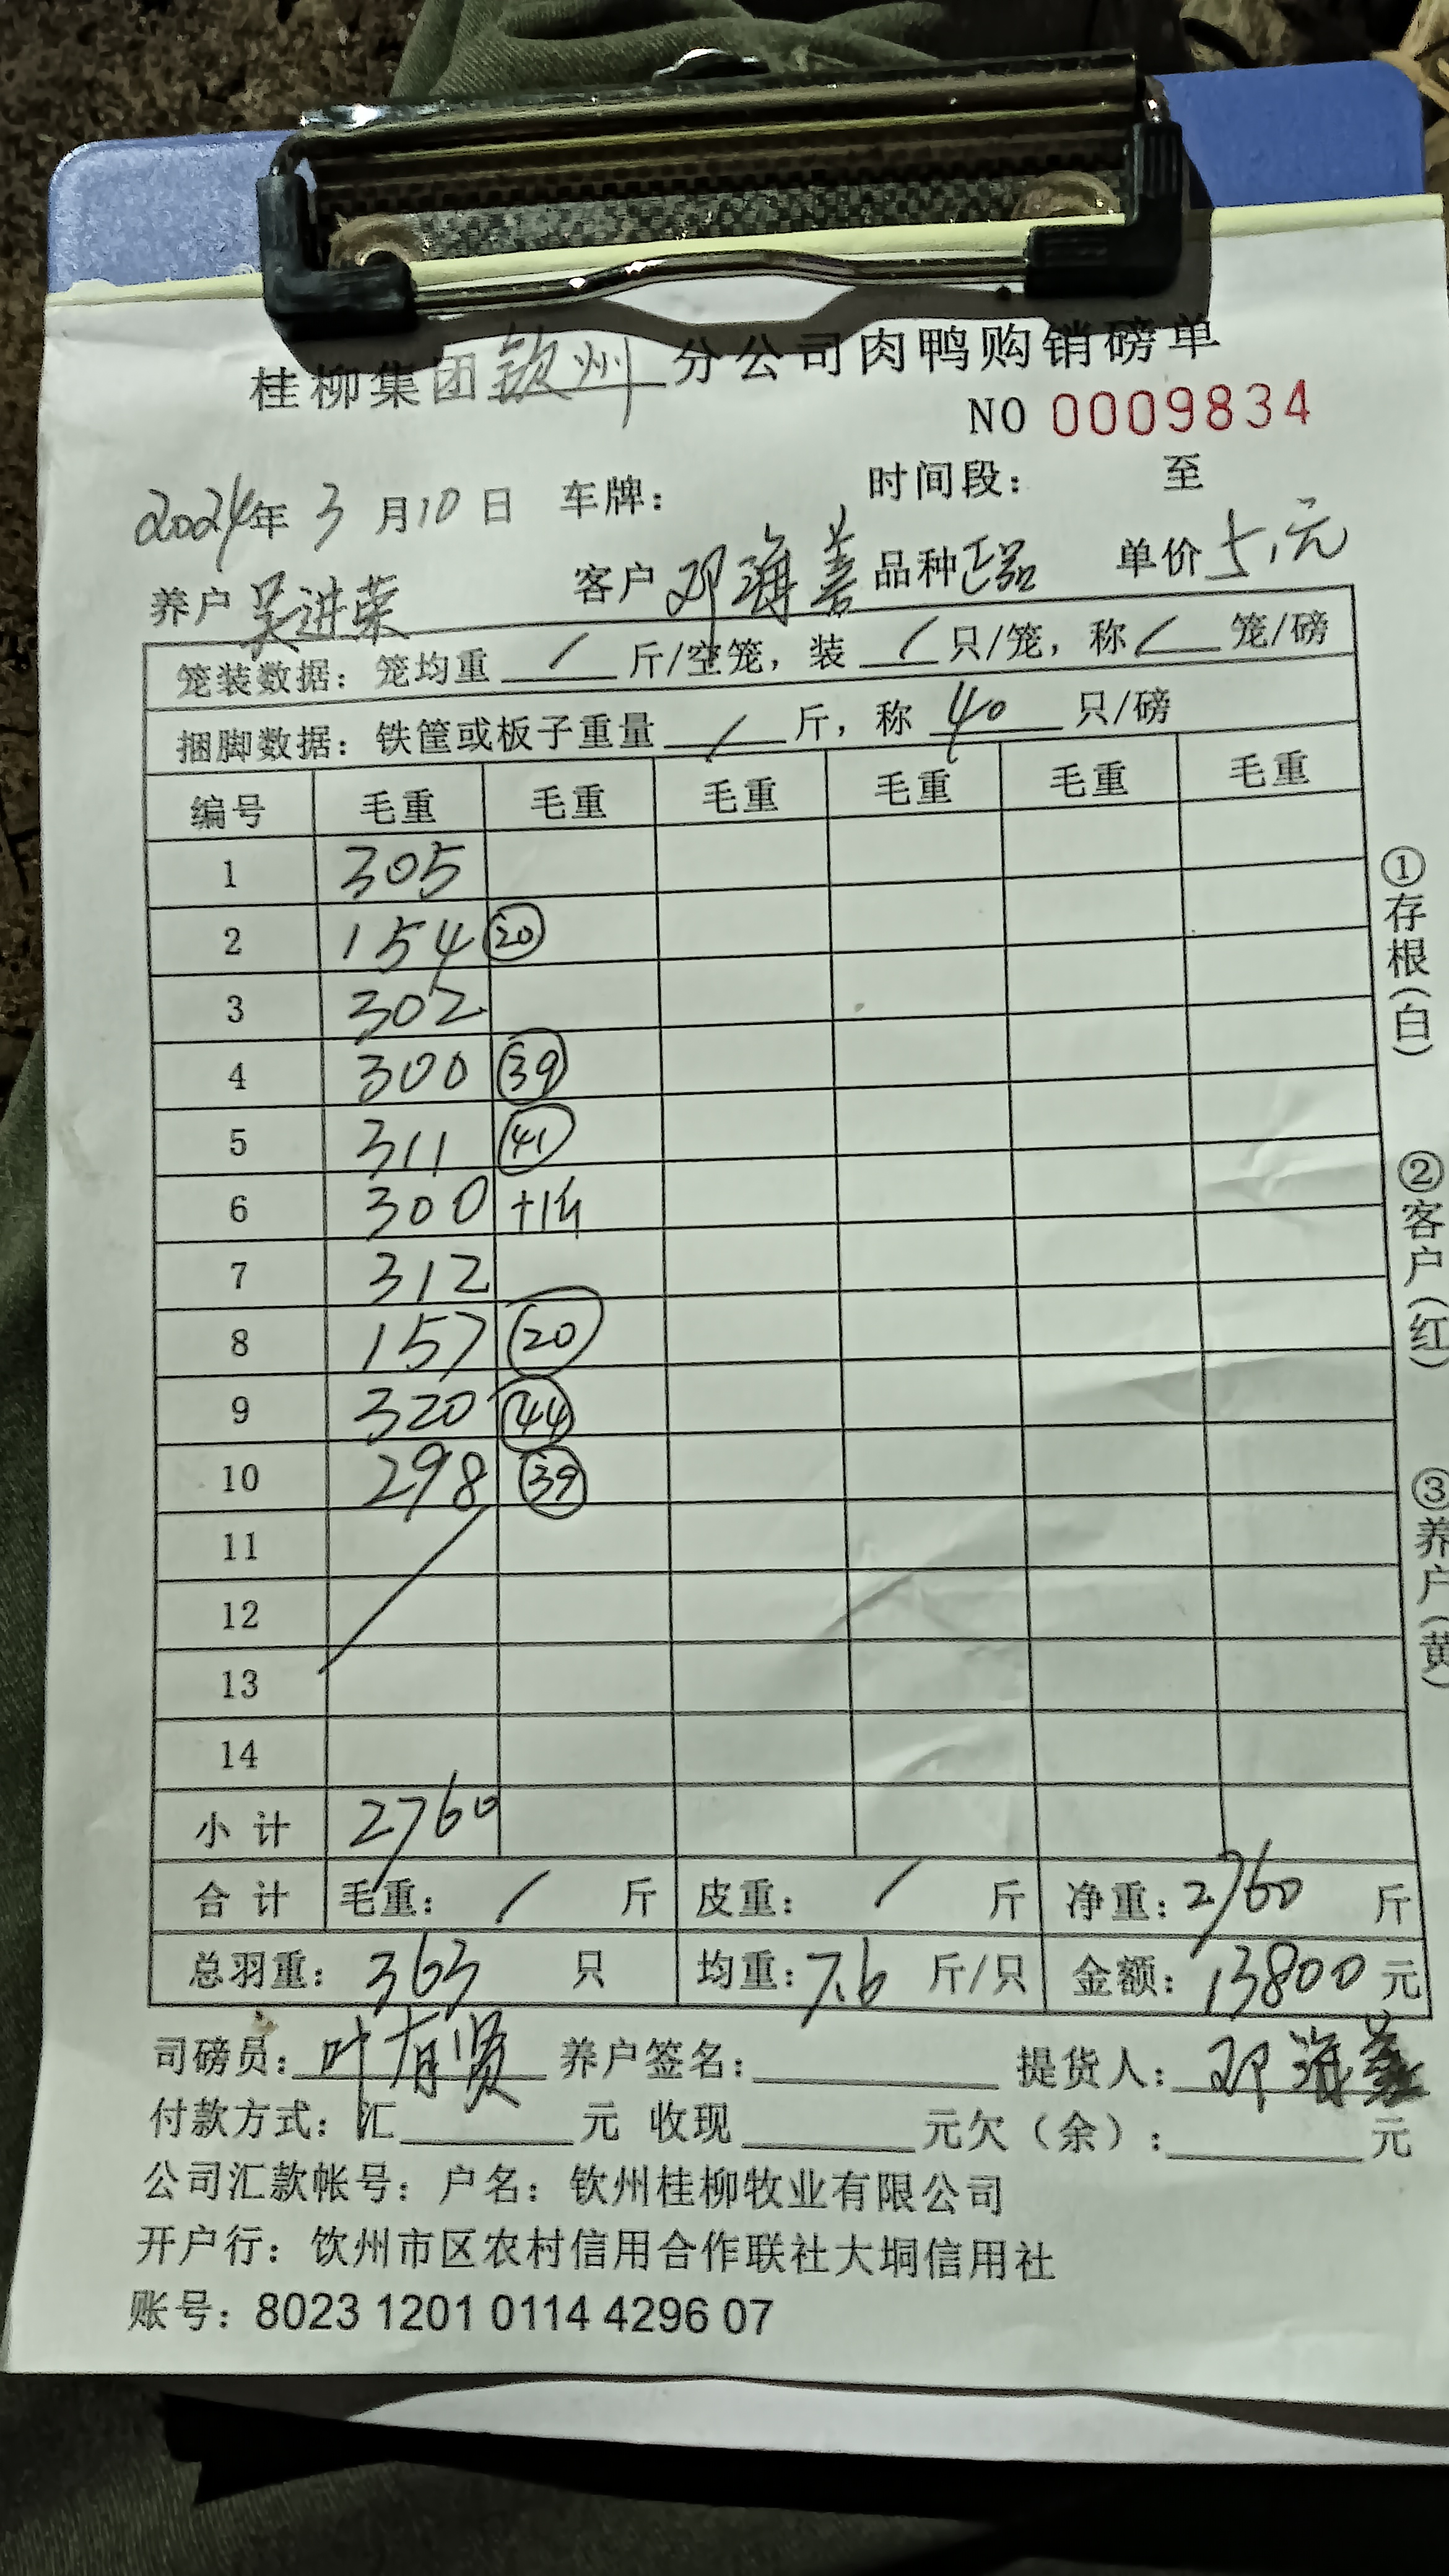 桂柳集团钦州分公司肉鸭购销磅单
NO 0009834
2024年3月10日 车牌： 时间段： 至
养户吴进荣 客户邓海善 品种正品 单价5.元
笼装数据：笼均重 / 斤/空笼，装 / 只/笼，称 / 笼/磅
捆脚数据：铁筐或板子重量 / 斤，称 40 只/磅
编号 毛重 毛重 毛重 毛重 毛重 毛重
1 305
2 154 20
3 302
4 300 39
5 311 41
6 300 +1斤
7 312
8 157 20
9 320 44
10 298 39
11
12
13
14
小计 2760
合计 毛重： / 斤 皮重： / 斤 净重：2760 斤
总羽重： 363 只 均重：7.6 斤/只 金额：13800元
司磅员：叶有贤 养户签名： 提货人：邓海善
付款方式：汇 元 收现 元欠（余）： 元
公司汇款帐号：户名：钦州桂柳牧业有限公司
开户行：饮州市区农村信用合作联社大垌信用社
账号：8023 1201 0114 4296 07
①存根（白）
②客户（红）
③养户（黄）